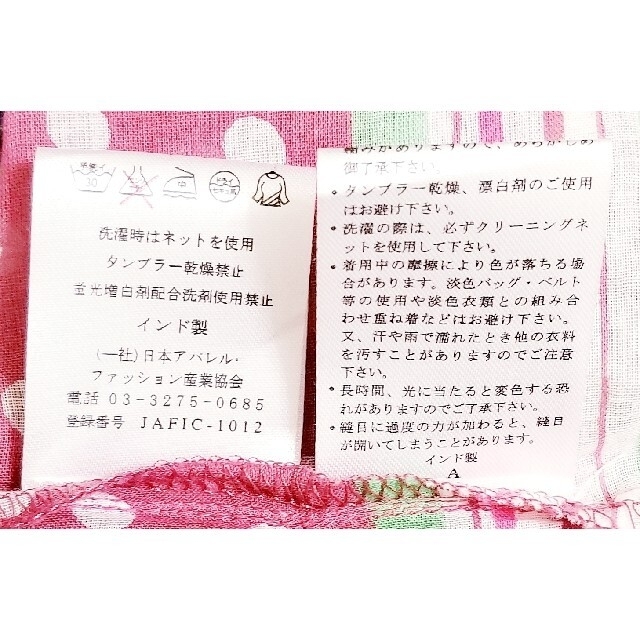 洗濯時はネットを使用
タンブラー乾燥禁止
蛍光増白剤配合洗剤使用禁止
インド製
(一社)日本アパレル・
ファッション産業協会
電話 03-3275-0685
登録番号 JAFIC-1012
がありますので、あらかじめ
御了承下さい。
・タンブラー乾燥、漂白剤のご使用
はお避け下さい。
・洗濯の際は、必ずクリーニングネ
ットを使用して下さい。
・着用中の摩擦により色が落ちる場
合があります。淡色バッグ・ベルト
等の使用や淡色衣類との組み合
わせ重ね着などはお避け下さい。
又、汗や雨で濡れたとき他の衣料
を汚すことがありますのでご注意
下さい。
・長時間、光に当たると変色する恐
れがありますのでご了承下さい。
・縫目に過度の力が加わると、縫目
が開いてしまうことがあります。
インド製
A